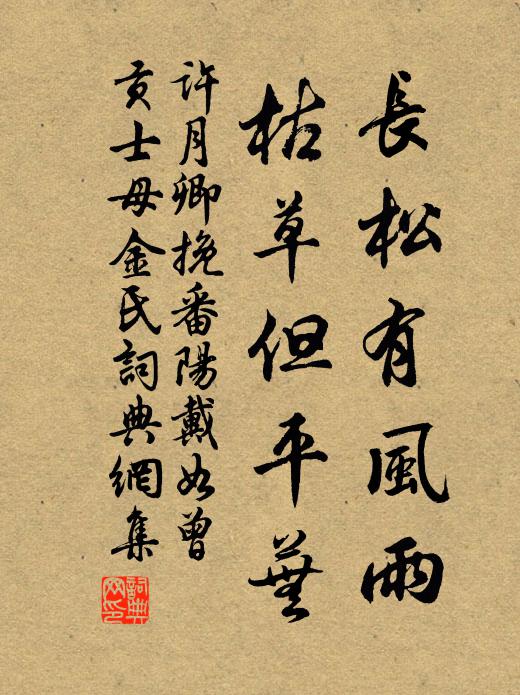 長松有風雨
枯草但平蕪
許月卿挽番陽戴如曾
貢士母金氏詞典網集
詞典網印